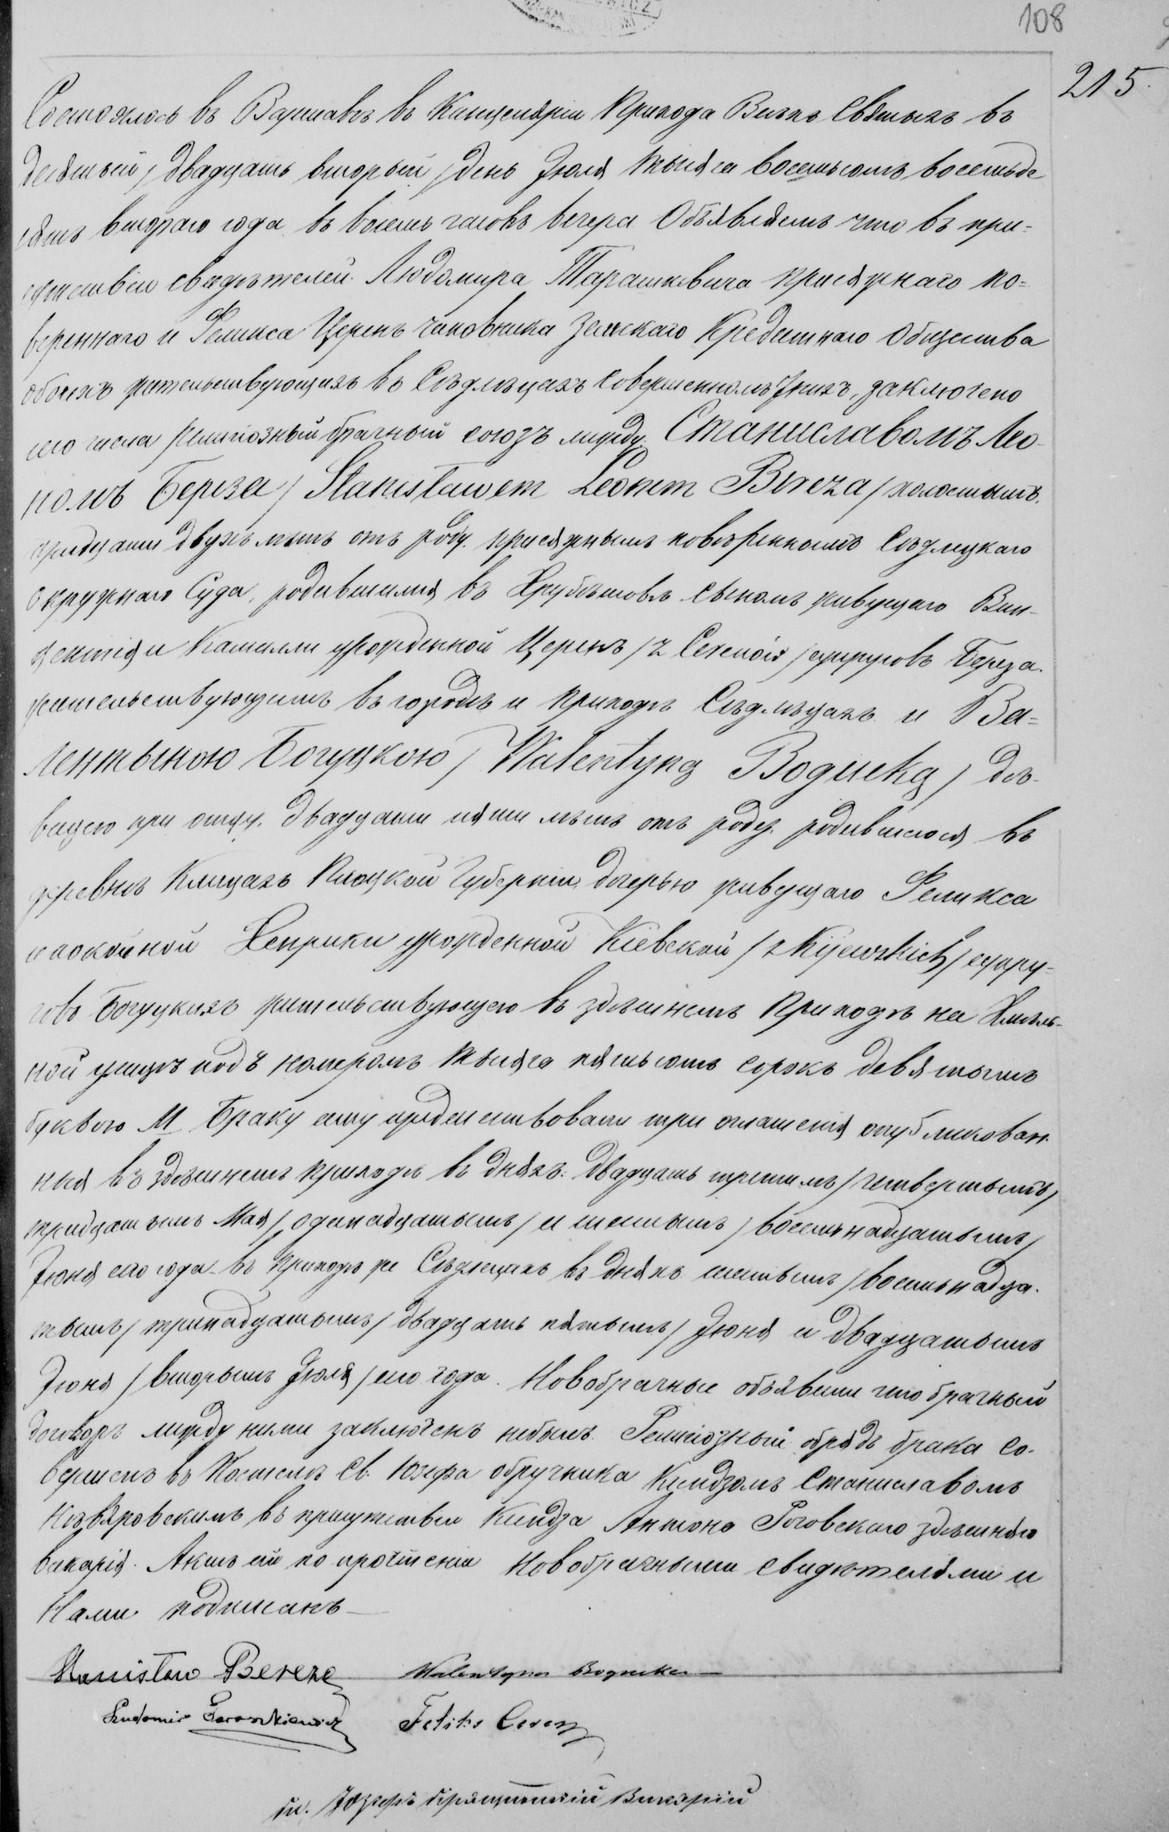 108
215.
Состоялось въ Варшавѣ въ Канцеляріи Прихода Всѣхъ Святыхъ въ
десятый / двадцать второй / день Іюля тысяча восемьсотъ восемьде
сятъ втораго года въ восемь часовъ вечера Объявляемъ что въ при=
сутствіи свидѣтелей Людомира Тарашкевича присяжнаго по=
вереннаго и Феликса Церенъ чиновника Земскаго Кредитнаго Общества
обоихъ жительствующихъ въ Сѣдлецахъ совершеннолѣтнихъ, заключено
сего числа религіозный брачный союзъ между Станиславомъ Лео-
номъ Береза / Stanisławem Leonem Bereza / холостымъ
тридцати двухъ лѣтъ отъ роду присяжнымъ повѣреннымъ Сѣдлецкаго
Окружнаго Суда, родившимся въ Хрубешовѣ сыномъ живущаго Вин-
центія и Камилли урожденной Церенъ / z Cerenów / супруговъ Береза
жительствующимъ въ городѣ и приходѣ Сѣдлецахъ и Ва=
лентыною Богуцкою / Walentyną Bogucką / дѣ-
вицею при отцу двадцати пяти лѣтъ отъ роду родившеюся въ
деревнѣ Клицахъ Плоцкой Губерніи дочерью живущаго Феликса
и покойной Хенрики урожденной Кіевской / z Kijewskich / супру=
говъ Богуцкихъ жительствующею въ здѣшнемъ приходѣ на Хмѣль-
ной улицѣ подъ номеромъ тысяча пятьсотъ сорокъ девятымъ
буквою М Браку сему предшествовали три оглашенія опубликован
ныя въ здѣшнемъ приходѣ въ дняхъ: двадцать третьемъ / четвертымъ /
тридцатымъ Мая / одинадцатымъ / и шестымъ / восемьнадцатымъ /
Іюня сего года въ приходѣ же Сѣдлецахъ въ дняхъ шестымъ / восемьнадца
тымъ / тринадцатымъ / двадцать пятымъ / Іюня и двадцатымъ
Іюня / вторымъ Іюля / сего года. Новобрачные объявили что брачный
договоръ между ними заключенъ небылъ. Религіозный обрядъ брака со-
вершенъ въ Костелѣ Св. Іозефа обручника Ксендзомъ Станиславомъ
въ присутствіи Ксендза Антона Роговскаго здѣшняго
викарія. Актъ сей по прочтеніи Новобрачными свидѣтелями и
Нами подписанъ
Stanisław Bereza Walentyna Bogucka
Ludomir Taraszkiewicz Feliks Ceren
Кс. Іозефъ Викарій